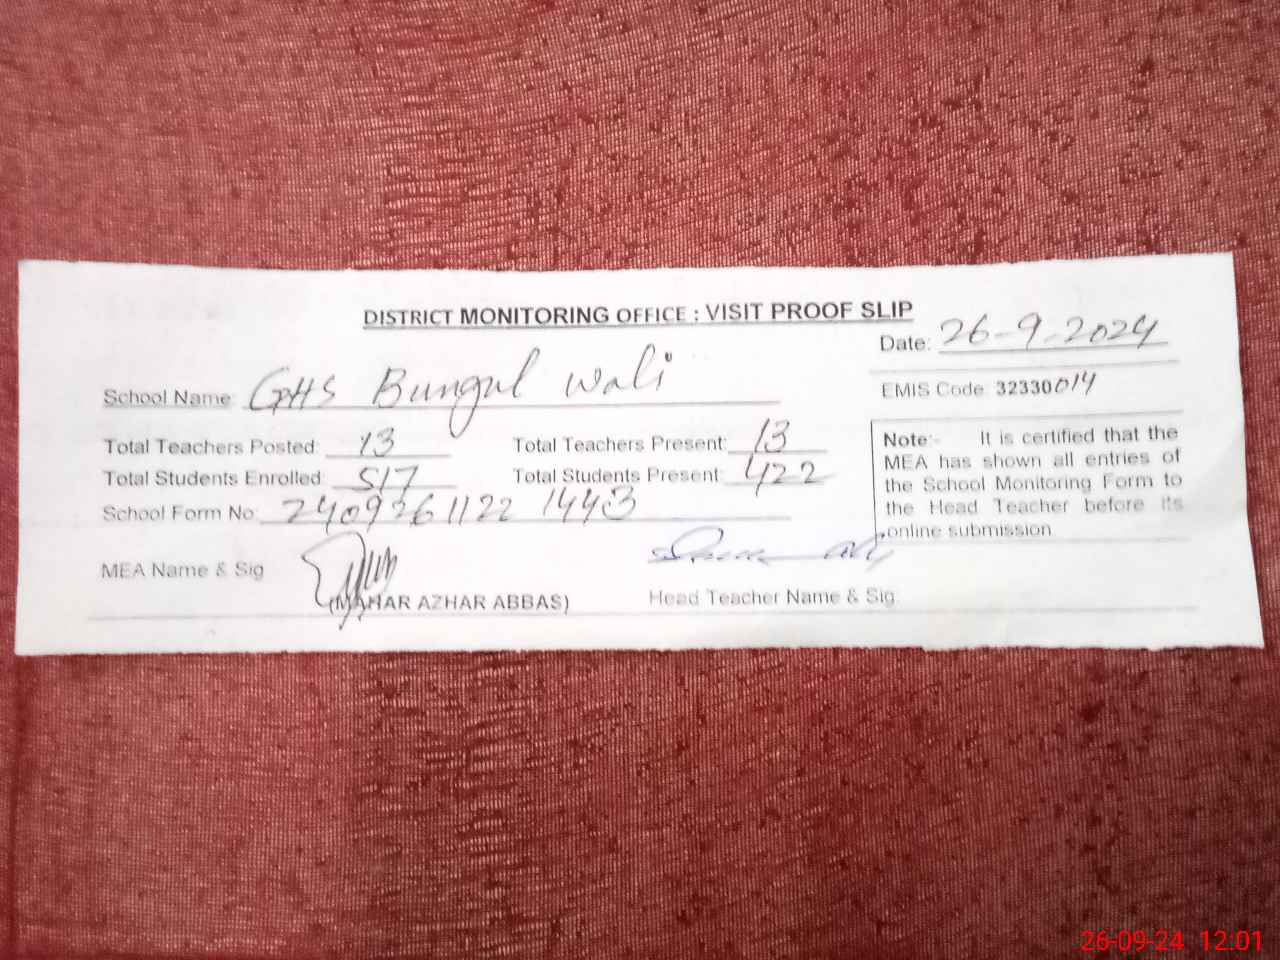 DISTRICT MONITORING OFFICE : VISIT PROOF SLIP
Date: 26-9-2024
School Name: GHS Bungul Wali
EMIS Code: 32330014
Total Teachers Posted: 13 Total Teachers Present: 13
Total Students Enrolled: 517 Total Students Present: 422
School Form No: 2409261122 1443
Note:- It is certified that the
MEA has shown all entries of
the School Monitoring Form to
the Head Teacher before its
online submission
MEA Name & Sig
(MAHAR AZHAR ABBAS)
Head Teacher Name & Sig
26-09-24 12:01